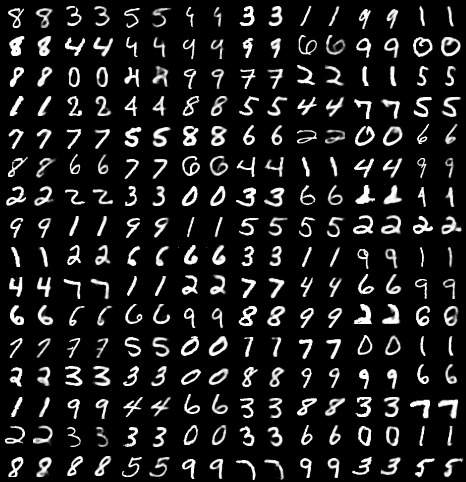 8 8 3 3 5 5 4 4 3 3 1 1 9 9 1 1
8 8 4 4 4 4 9 9 9 9 6 6 9 9 0 0
8 8 0 0 9 9 7 7 2 2 1 1 5 5
1 1 2 2 4 4 8 8 5 5 4 4 7 7 5 5
7 7 7 7 5 5 8 8 6 6 2 2 0 0 6 6
8 8 6 6 7 7 6 6 4 4 1 1 4 4 9 9
2 2 2 2 3 3 0 0 3 3 6 6 2 2 1 1
9 9 1 1 9 9 1 1 5 5 5 5 2 2 2 2
1 1 2 2 6 6 6 6 3 3 1 1 9 9 1 1
4 4 7 7 1 1 2 2 7 7 4 4 6 6 9 9
6 6 6 6 6 6 9 9 8 8 9 9 2 2 6 6
7 7 7 7 5 5 0 0 7 7 7 7 0 0 1 1
2 2 3 3 3 3 0 0 8 8 9 9 9 9 6 6
1 1 9 9 4 4 6 6 3 3 8 8 3 3 7 7
2 2 3 3 3 3 0 0 3 3 6 6 0 0 1 1
8 8 8 8 5 5 9 9 7 7 9 9 3 3 5 5